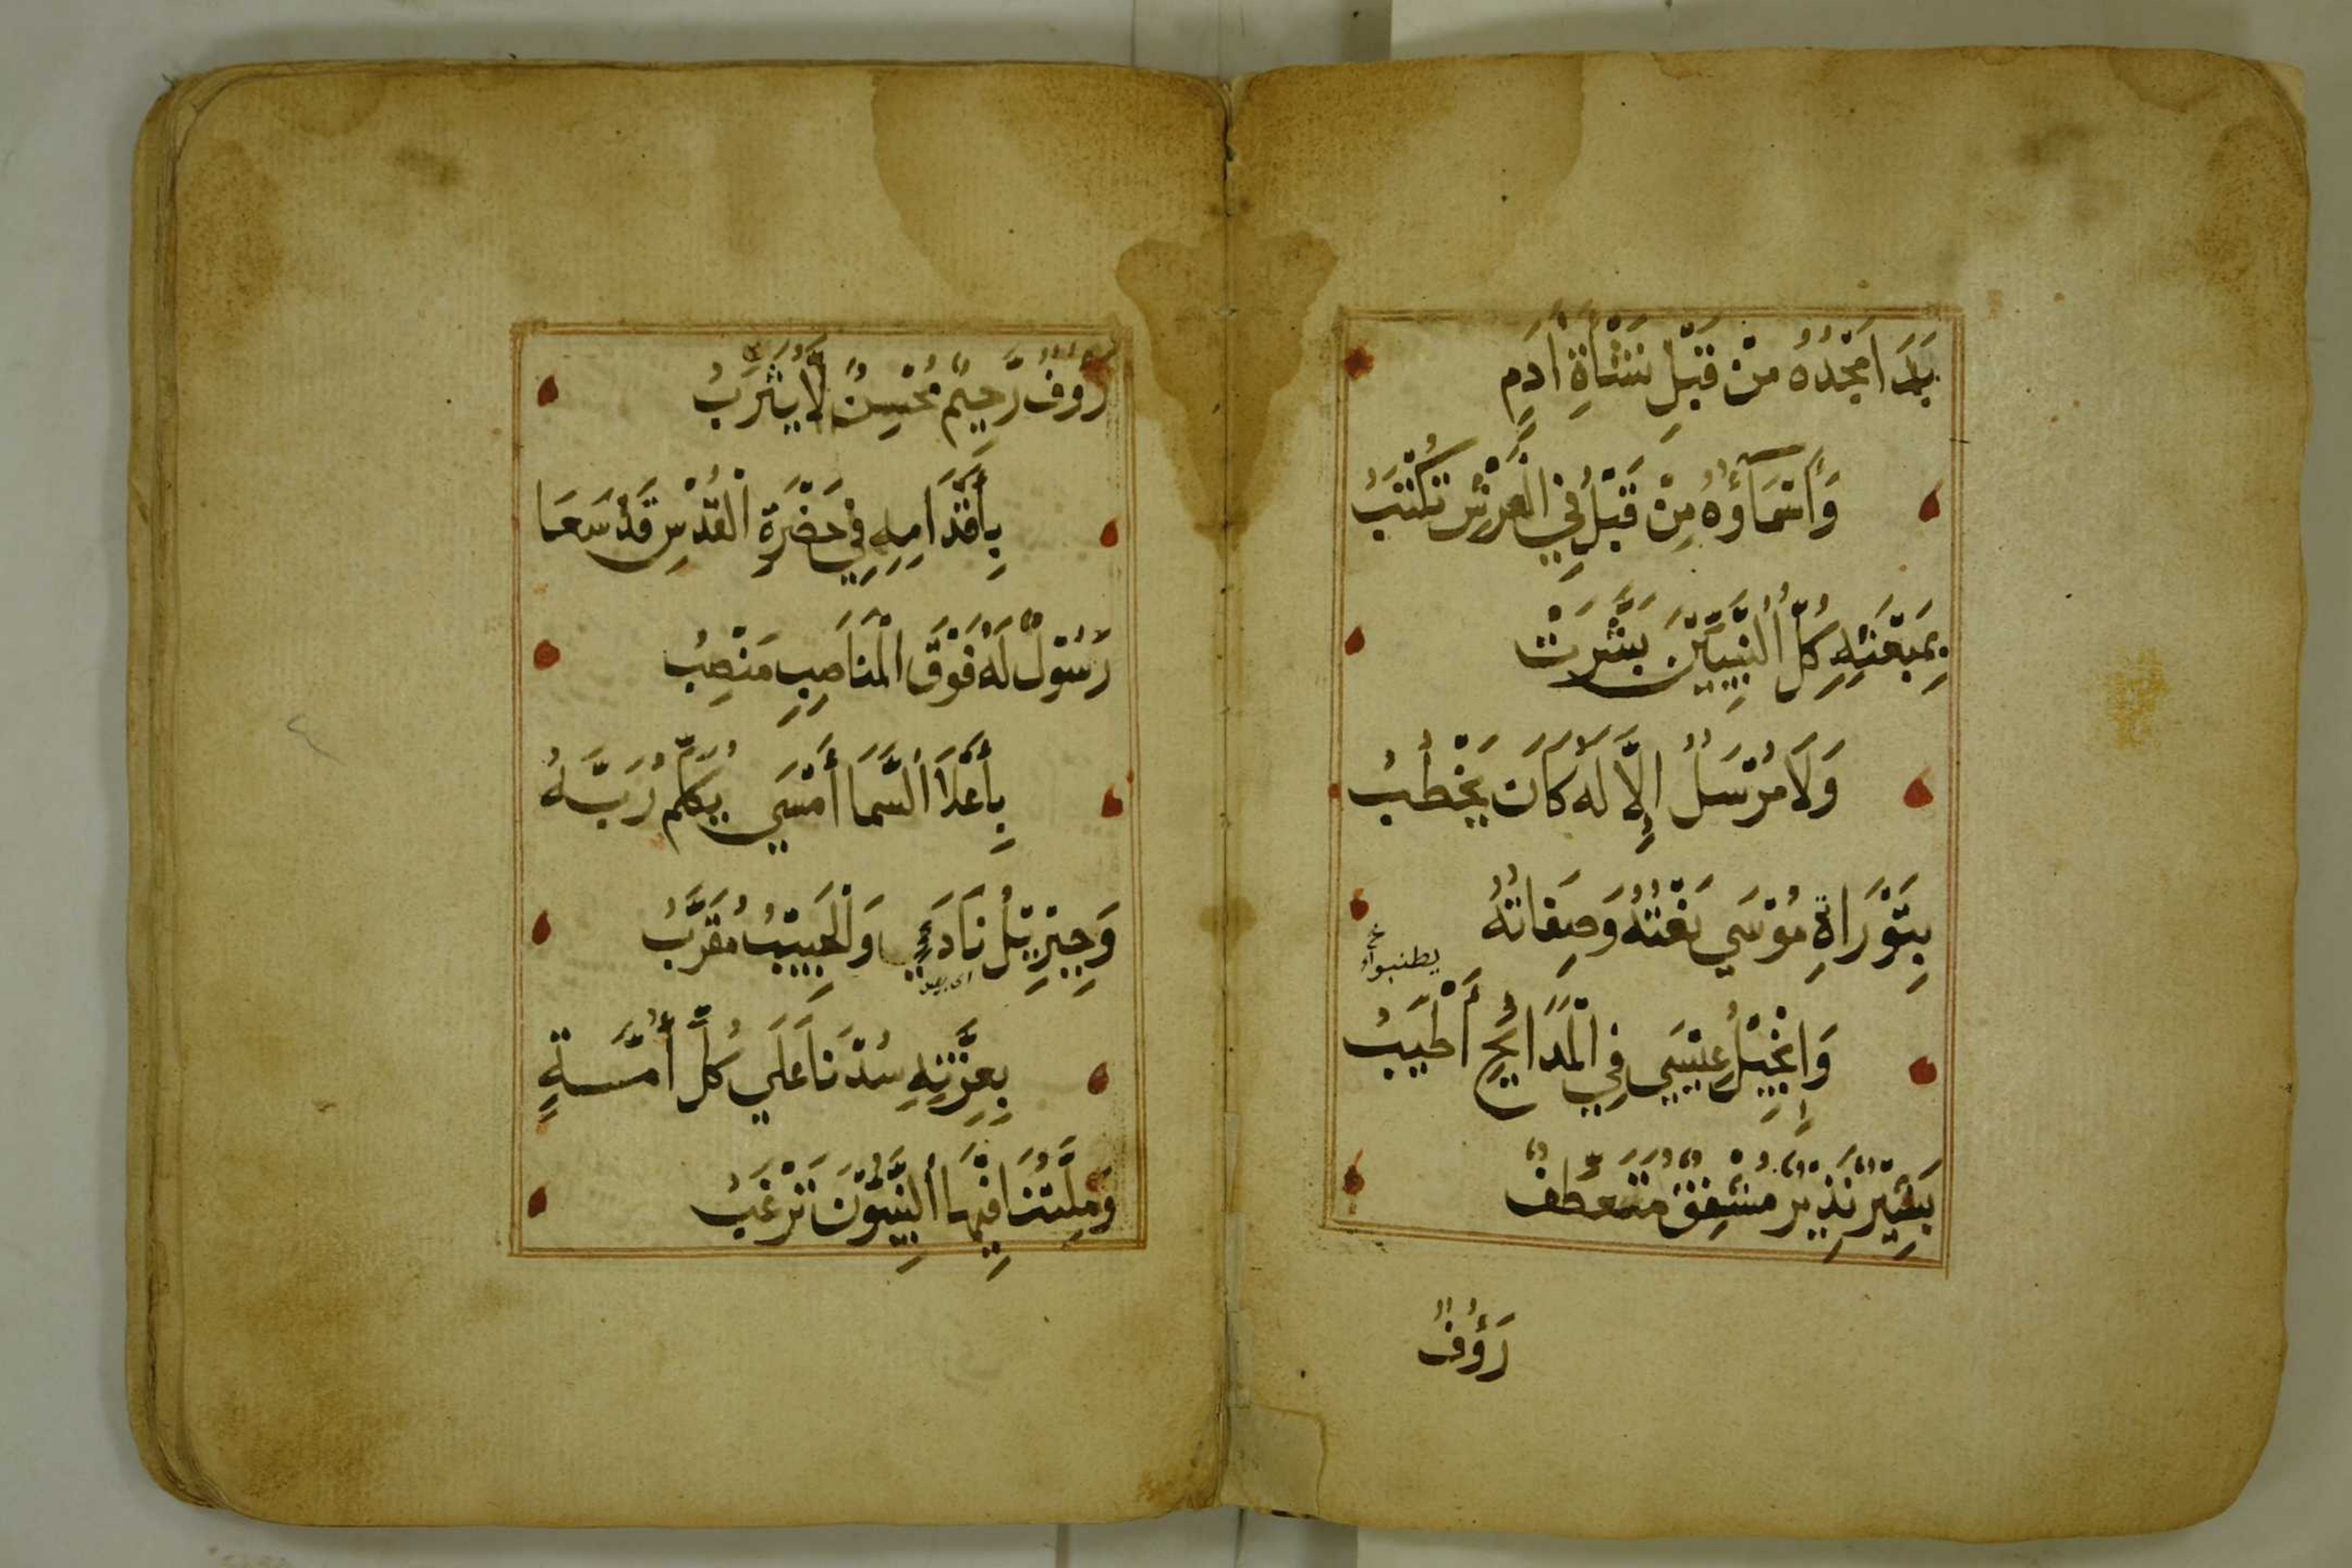 بَدَا مَجْدُهُ مِنْ قَبْلِ نَشْأَةِ آدَمٍ
وَأَسْمَآؤُهُ مِنْ قَبْلُ فِي الْعَرْشِ تُكْتَبُ
بِمَبْعَثِهِ كُلُّ النَّبِيِّيْنَ بَشَّرَتْ
وَلَا مُرْسَلٌ إِلَّا لَهُ كَانَ يَخْطُبُ
بِتَوْرَاةِ مُوْسَي نَعْتُهُ وَصِفَاتُهُ
يطنبوا
وَإِنْجِيْلُ عِيْسَي فِي الْمَدَائِحِ أَطْيَبُ
بَشِيْرٌ نَذِيْرٌ مُشْفِقٌ مُتَعَطِّفٌ
رَؤُفٌ
رَؤُفٌ رَّحِيْمٌ مُحْسِنٌ لَّا يُثَرِّبُ
بِأَقْدَامِهِ فِي حَضْرَةِ الْقُدْسِ قَدْ سَعَا
رَسُوْلٌ لَهُ فَوْقَ الْمَنَاصِبِ مَنْصِبُ
بِأَعْلَا السَّمَا أَمْسَي يُكَلِّمُ رَبَّهُ
وَجِبْرِيْلُ نَادَي وَالْحَبِيْبُ مُقَرَّبُ
بِعِزَّتِهِ سُدْنَا عَلَي كُلِّ أُمَّةٍ
وَمِلَّتُنَا فِيْهَا النَّبِيُّوْنَ تَرْغَبُ